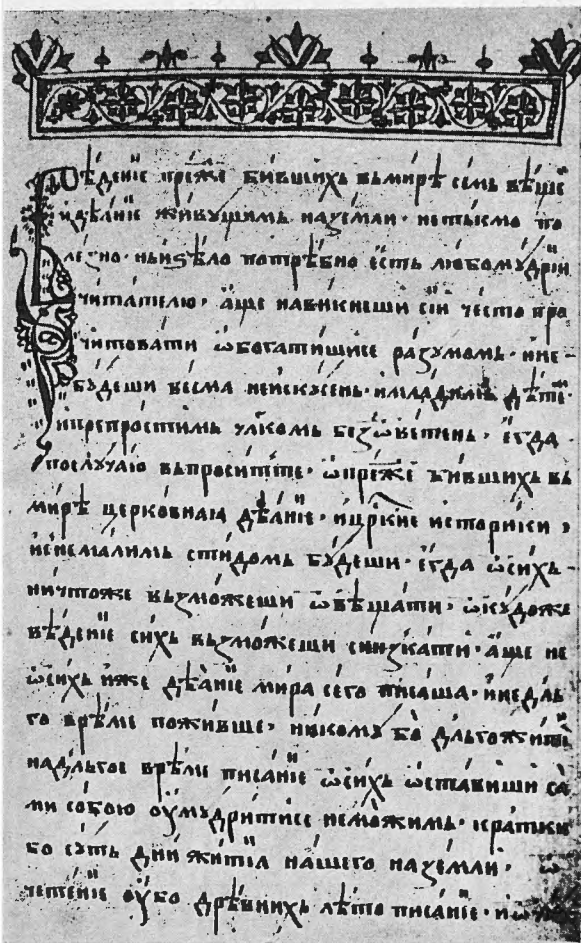 Вѣденїе прѣже бившихъ вьмирѣ семь вѣщеи
идѣлнїе живущимь наꙁемли· нетькмо по
леꙁно· ньиѕѣло потрѣбно ѥсть любомудрїи
читателю· аще навикнеши сїи често про
читовати ѡбогатишисе раꙁумомь· ине
будеши весма неискусень· имладимь дѣте
ипрепростимь чл҃комь беꙁѿветень· ѥгда
послучаю вьпроситте· ѡпреже бившихь вь
мирѣ церковнаꙗ дѣанїе· ицр҃кїе историки,
инемалимь стидомь будеши· ѥгда ѡсихь
ничтоже вьꙁможеши ѿвѣщати· ѿкудоже
вѣденїе сихь вьꙁможеши снискати· аще не
ѿсихь иже дѣанїе мира сего писаша· инедль
го врѣме поживше· никому бо дльгожитїе
надльгое врѣме писанїе ѡсихь ѡставиши са
ми собою оумудритисе неможимь· кратки
бо суть днїи житїꙗ нашего наꙁемли· ѿ
четенїе оубо дрѣвнихь лѣто писанїе·